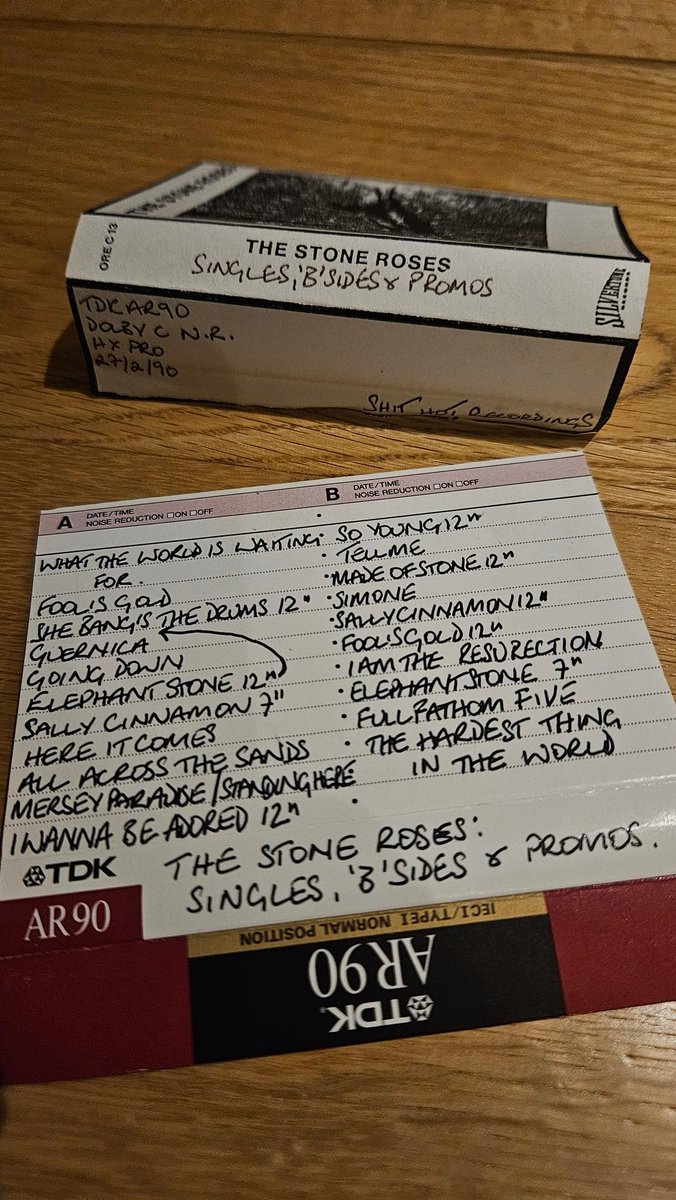 THE STONE ROSES
ORE C 13
THE STONE ROSES
SINGLES, 'B' SIDES & PROMOS
SILVERTONE
RECORDS
TDK AR90
DOLBY C N.R.
HX PRO
27/2/90
SHIT HOT RECORDINGS
A DATE/TIME
NOISE REDUCTION □ON □OFF
B DATE/TIME
NOISE REDUCTION □ON □OFF
WHAT THE WORLD IS WAITING
FOR.
FOOL'S GOLD
SHE BANG'S THE DRUMS 12"
GUERNICA
GOING DOWN
ELEPHANT STONE 12"
SALLY CINNAMON 7"
HERE IT COMES
ALL ACROSS THE SANDS
MERSEY PARADISE/STANDING HERE
I WANNA BE ADORED 12"
· SO YOUNG 12"
· TELL ME
· MADE OF STONE 12"
· SIMONE
· SALLY CINNAMON 12"
· FOOL'S GOLD 12"
· I AM THE RESURECTION
· ELEPHANT STONE 7"
· FULL FATHOM FIVE
· THE HARDEST THING
IN THE WORLD
TDK
THE STONE ROSES:
SINGLES, 'B' SIDES & PROMOS.
AR90
IECI/TYPEI NORMAL POSITION
AR90
TDK®